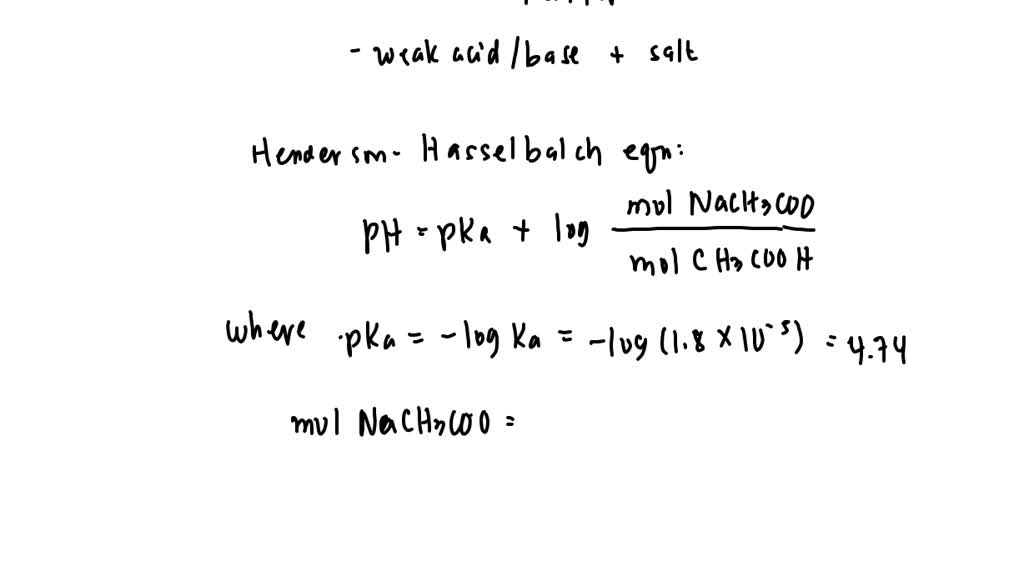 - weak acid/base + salt
Henderson-Hasselbalch eqn:
pH = pKa + log mol NaCH3COO / mol CH3COOH
where pKa = -log Ka = -log (1.8 x 10^-5) = 4.74
mol NaCH3COO =